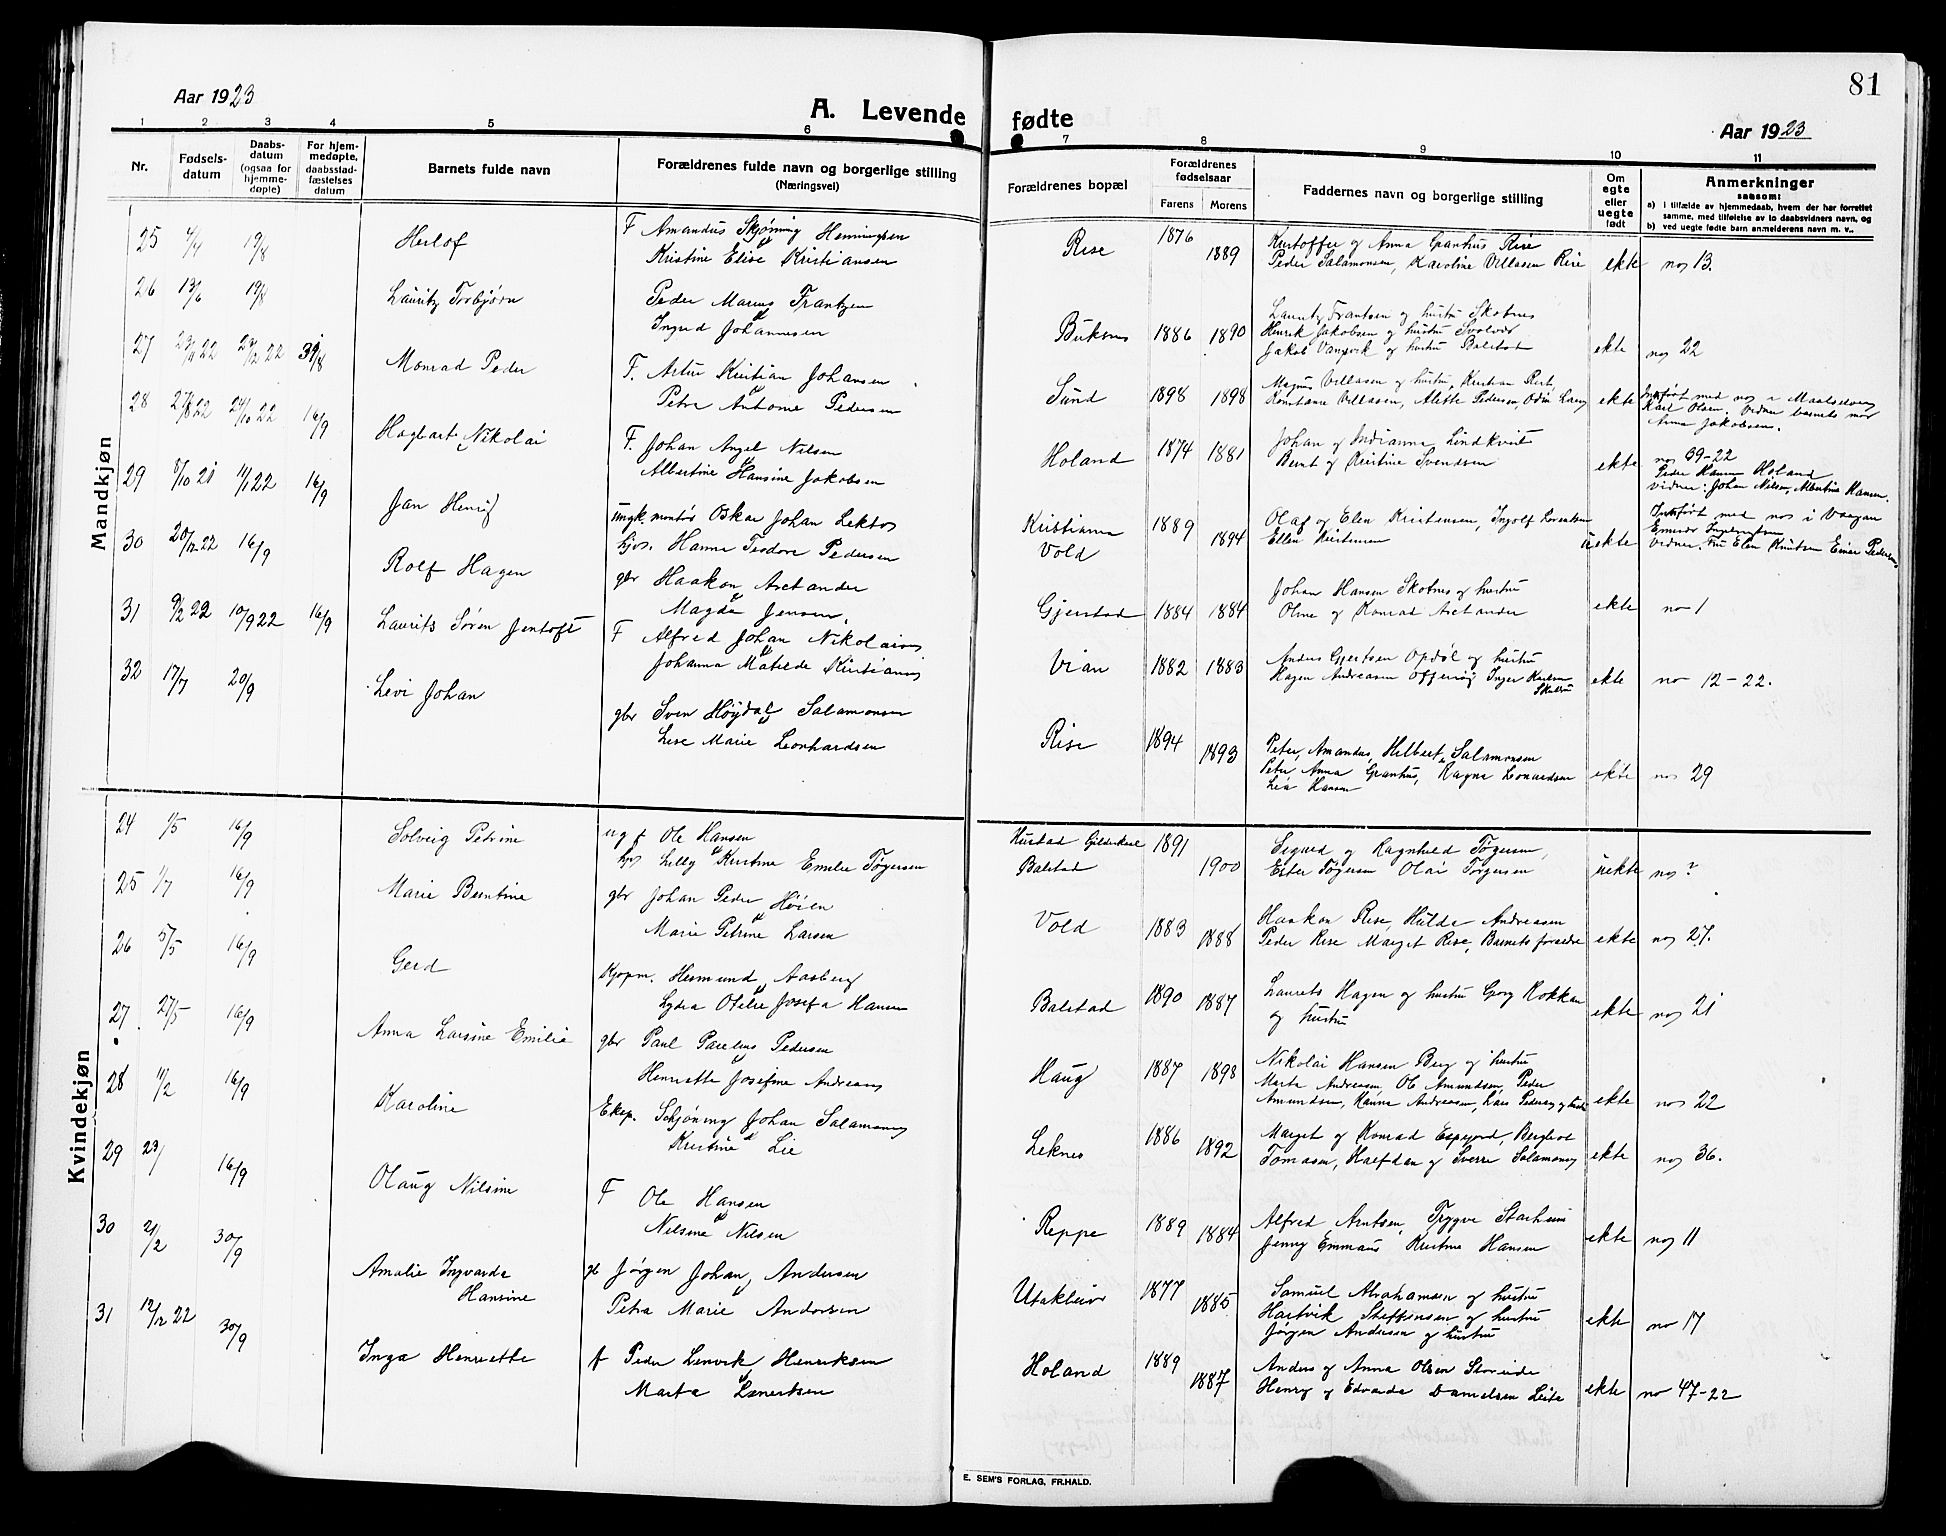 81
Aar 1923
A. Levende fødte
Aar 1923
1 2 3 4 5 6 7 8 9 10 11
Nr.
Fødsels-
datum
Daabs-
datum
(ogsaa for
hjemme-
døpte)
For hjem-
medøpte,
daabsstad-
fæstelses
datum
Barnets fulde navn
Forældrenes fulde navn og borgerlige stilling
(Næringsvei)
Forældrenes bopæl
Forældrenes
fødselsaar
Farens Morens
Faddernes navn og borgerlige stilling
Om
egte
eller
uegte
født
Anmerkninger
saasom:
a) i tilfælde av hjemmedaab, hvem der har forrettet
samme, med tilføielse av to daabsvidners navn, og
b) ved uegte fødte barn anmelderens navn m. v..
Mandkjøn
25 4/4 19/8 Herlof F Amandus Skjøning Henningsen Rise 1876 Kristoffer og Anna Granhus Rise
Kristine Elise Kristiansen 1889 Peder Salamonsen, Karoline Villasen Rise ekte no 13.
26 13/6 19/8 Lauritz Torbjørn Peder Marius Frantzen Lauritz Frantsen og hustru Skotnes
Ingrid Johannesen Buksnes 1886 1890 Henrik Jakobsen og hustru Svolvær
Jakob Vangsvik og hustru Balstad ekte no 22
27 Monrad Peder F. Artur Kristian Johansen Sund 1898 1898 Magnus Villasen og hustru, Kristian Rist,
Petra Antonie Pedersen Konstanse Villasen, Alette Pedersen, Odin ekte Indført med no i Maalselven
Karl Olsen. Vidner barnets mor
Anna Jakobsen.
28 27/8 22 24/10 22 16/9 Hagbart Nikolai F. Johan Angel Nilsen Holand 1874 1881 Johan og Indianna Lindkvist
Albertine Hansine Jakobsen Bernt og Kristine Svendsen ekte no 39-22
Peder Hansen Holand
vidner: Johan Nilsen, Albertine Hansen.
29 8/10 21 11/1 22 16/9 Jan Henrij ungk. montør Oskar Johan Lektos Kristiania 1889 Olaf og Elen Kristensen, Ingolf Lorentsen
Hanna Teodora Pedersen Vold 1894 Ellen Kristensen uekte Indført med no i Vaagan
vidner. Fru Elen Knutsen Einar Pedersen.
30 20/12 22 16/9 Rolf Hagen gbr Haakon Arctander Gjerstad 1884 1884 Johan Hansen Skotnes og hustru
Magda Jensen. Oline og Konrad Arctander ekte no 1
31 9/2 22 10/9 22 16/9 Laurits Søren Jentoft F Alfred Johan Nikolaisen Vian 1882 1883 Anders Gjertsen Opdøl og hustru
Johanna Matilde Kristiansen Hagen Andreasen Offersøy Inger Karlsen ekte no 12-22.
32 17/7 20/9 Levi Johan gbr Sven Høydal Salamonsen Rise 1894 1893 Peter, Amandus, Hilbert Salamonsen
Lise Marie Leonhardsen Peter, Anna Granhus, Ragna Leonardsen ekte no 29
Lea Hansen
Kvindekjøn
24 1/5 16/9 Solveig Petrine ug f Ole Hansen Hustad Gildeskaal 1891 Sigurd og Ragnhild Tøgersen,
Lilly Kristine Emelie Tøgersen Balstad 1900 Ester Tøgersen Olai Tørgersen uekte no ?
25 1/7 16/9 Marie Berntine gbr Johan Peder Høien Vold 1883 1888 Haakon Rise, Hulda Andreasen
Marie Petrine Larsen Peder Rise Marget Rise, Barnets foreldre ekte no 27.
26 5/5 16/9 Gerd Kjøpm. Hermund Aasberg Balstad 1890 1887 Laurits Hagen og hustru Georg Rokkan
Lydia Otelie Josefa Hansen og hustru ekte no 21
27 27/5 16/9 Anna Larsine Emilie gbr Paul Parelius Pedersen Haug 1887 1898 Nikolai Hansen Berg og hustru
Henriette Josefine Andreasen Marta Andreasen Ole Amundsen, Peder
Amundsen, Hanna Andreasen, Lars Pedersen og hustru ekte no 22
28 11/2 16/9 Karoline Eksp. Schjøning Johan Salamonsen Leknes 1886 1892 Marget og Konrad Espejord, Bergliot
Kristine Lie Tomasen, Halfdan og Sverre Salamonsen ekte no 36.
29 23/ 16/9 Olaug Nilsine F Ole Hansen Reppe 1889 1884 Alfred Arntsen, Trygve Starheim
Nilsine Nilsen Jenny Emmaus Kristine Hansen ekte no 11
30 21/2 30/9 Amalie Ingvarda Hansine gb Jørgen Johan Andersen Utakleiv 1877 1885 Samuel Abrahamsen og hustru
Petra Marie Andorsen Hartvik Steffensen og hustru
Jørgen Andersen og hustru ekte no 17
31 12/12 22 30/9 Inga Henriette f Peder Lenvik Henriksen Holand 1889 1887 Anders og Anna Olsen Storeide
Marta Lenertsen Henry og Edvarda Danielsen Leite ekte no 47-22
E. SEM'S FORLAG, FR.HALD.